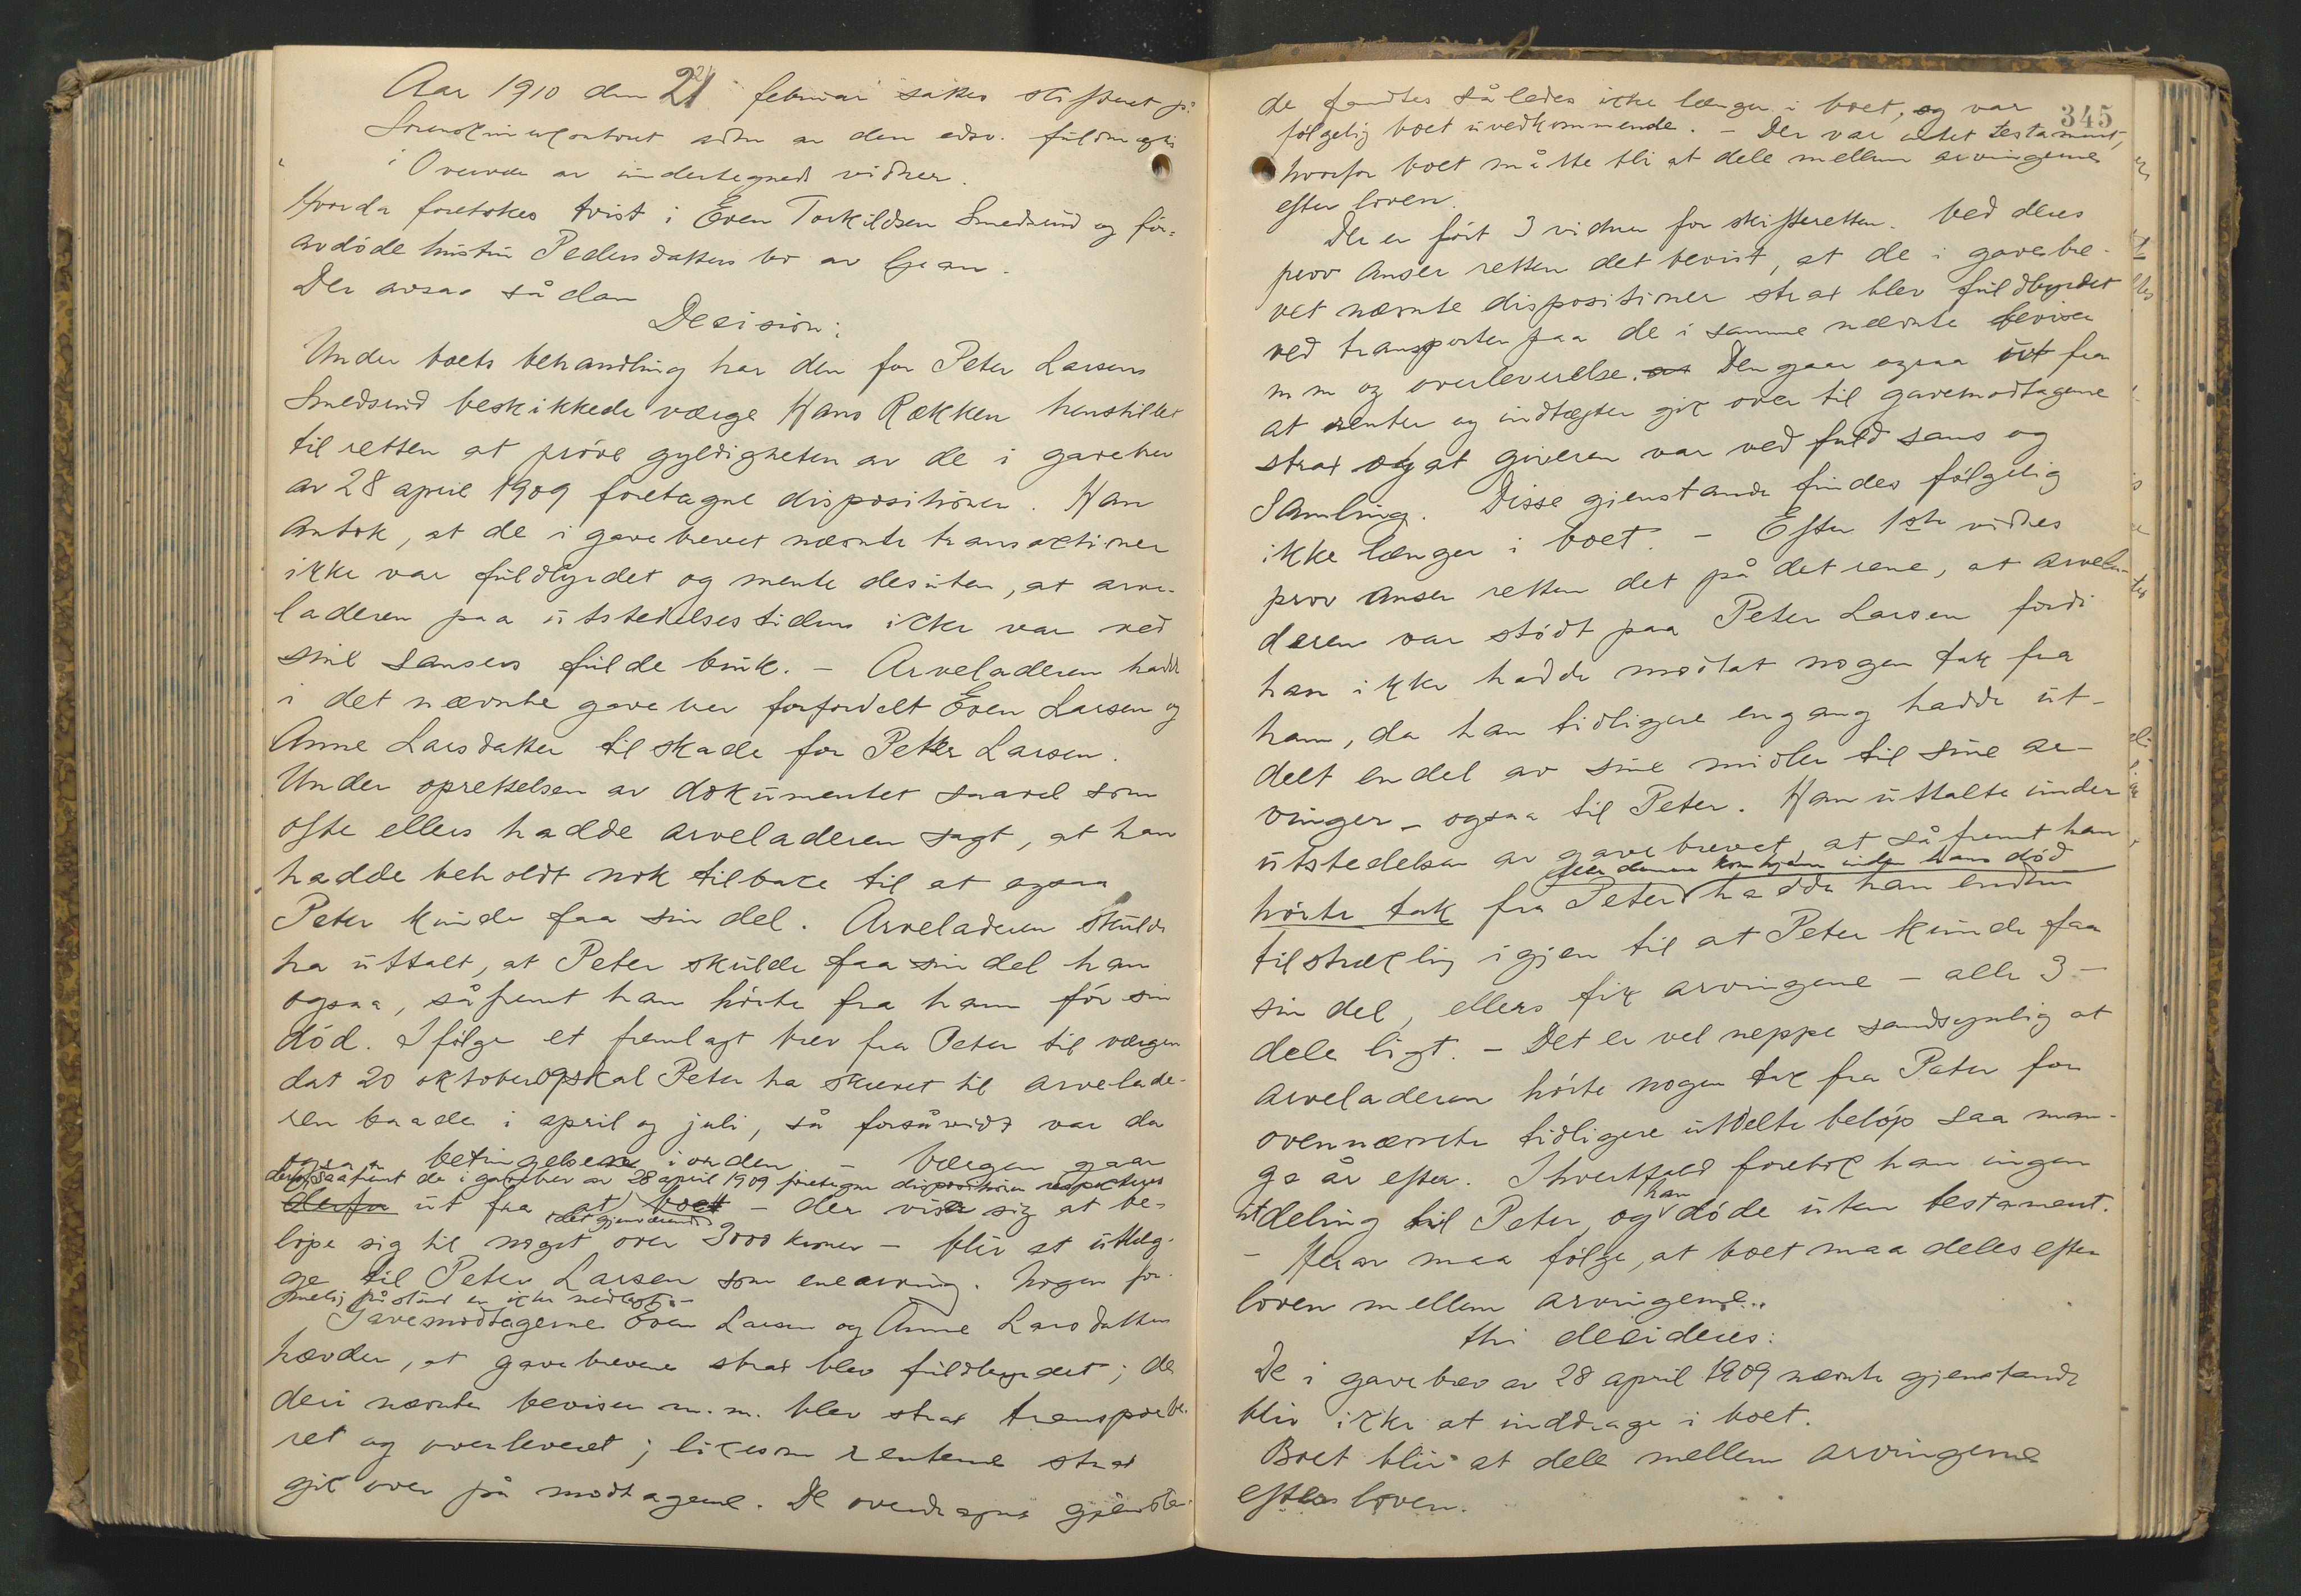 Aar 1910 den 21 februar sattes skifteret på
Sorenskriverkontoret adm av den edsv. fuldmægtig
i Overvær av undertegnede vidner.
Hvorda foretokes tvist i Even Torkildsen Smedsrud og før-
avdöde hustru Pedersdatters bo av Gran.
Der avsaa sådan
Decision:
Under boets behandling har den for Peter Larsen
Smedsrud beskikkede værge Hans Rækken henstillet
til retten at pröve gyldigheten av de i gavebrev
av 28 april 1909 foretagne dispositioner. Han
antok, at de i gavebrevet nævnte transactioner
ikke var fuldbyrdet og mente desuten, at arve-
laderen paa utstedelsestiden ikke var ved
sine sansers fulde bruk. – Arveladeren hadde
i det nævnte gavebrev forfordelt Even Larsen og
Anne Larsdatter til skade for Peter Larsen.
Under oprettelsen av dokumentet saavel som
ofte ellers hadde arveladeren sagt, at han
hadde beholdt nok tilbake til at ogsaa
Peter kunde faa sin del. Arveladeren skulde
ha uttalt, at Peter skulde faa sin del han
ogsaa, såfremt han hörte fra ham för sin
död. Ifölge et fremlagt brev fra Peter til værgen
dat 20 oktober 09 skal Peter ha skrevet til arvelade-
ren baade i april og juli, så forsåvidt var da
ogsaa betingelsene i orden – Værgen gaar
derfor, saafremt de i gavebrev av 28 april 1909 foretagne dispositioner respekteres
derfor ut fra at boet – der viser sig at be-
(det gjenværende)
löpe sig til noget over 3000 kroner – blir at utlæg-
ge til Peter Larsen som enearving. Nogen for-
melig påstand er ikke nedlagt. –
Gavemodtagerne Even Larsen og Anne Larsdatter
hævder, at gavebrevene strax blev fuldbyrdet; de
deri nævnte beviser m. m. blev strax transporte-
ret og overleveret; likesom renterne strax
gik over på modtagerne. De overdragne gjenstan-
345
de fandtes således ikke længer i boet, og var
fölgelig boet uvedkommende. – Der var intet testament,
hvorfor boet måtte bli at dele mellem arvingerne
efter loven.
Der er fört 3 vidner for skifteretten. Ved deres
prov anser retten det bevist, at de i gavebre-
vet nævnte dispositioner strax blev fuldbyrdet
ved transporter paa de i samme nævnte beviser
m m og overleverelse. Den gaar ogsaa ut fra
at renter og indtægter gik over til gavemodtagerne
strax og at giveren var ved fuld sans og
Samling. Disse gjenstande findes fölgelig
ikke længer i boet. – Efter 1ste vidnes
prov anser retten det på det rene, at arvela-
deren var stödt paa Peter Larsen fordi
han ikke hadde modtat nogen tak fra
ham, da han tidligere engang hadde ut-
delt endel av sine midler til sine ar-
vinger – ogsaa til Peter. Han uttalte under
utstedelsen av gavebrevet, at såfremt han
eller denne kom hjem inden hans död
hörte tak fra Peter hadde han endnu
tilstrækkelig igjen til at Peter kunde faa
sin del, ellers fik arvingene – alle 3 –
dele ligt. – Det er vel neppe sandsynlig at
Arveladeren hörte nogen tak fra Peter for
ovennævnte tidligere utdelte belöp saa man-
ge år efter. Ihvertfald foretok han ingen
utdeling til Peter, og han döde uten testament.
– Herav maa fölge, at boet maa deles efter
loven mellem arvingerne..
thi decideres:
De i gavebrev av 28 april 1909 nævnte gjenstande
blir ikke at inddrage i boet.
Boet blir at dele mellem arvingerne
efter loven.